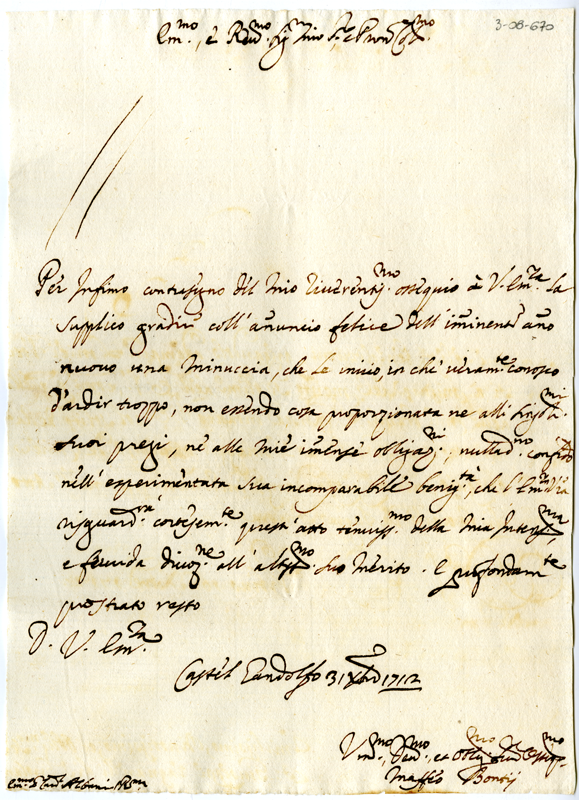 3-08-670
Em.mo, e Rev.mo Sig.r mio S.r e Pron Col.mo
Per infimo contrasegno del mio riverentis.mo ossequio à V. Em.za La
supplico gradire coll'anuncio felice dell'iminente año
nuovo una minuccia, che Le invio, in che veram.te conosco
d'ardir troppo, non essendo cosa proporzionata ne alli singola.mi
suoi pregi, nè alle mie imense obligaz.ni, nullad.no confido
nell'experimentata sua incomparabile benig.tà, che l'Em.za V.ra
risguard.rà cortesem.te quest'atto tenuiss.mo della mia
e fervida divoz.ne all'altiss.mo suo merito. E profondam.te
prostrato resto
D. V. Em.za
Castel Gandolfo 31 Xbre 1712
V.mo Dev.mo, et Oblig.mo Ser.e Osseq.mo
Maffio Bontij
Em.mo S. Card. Albani Roma